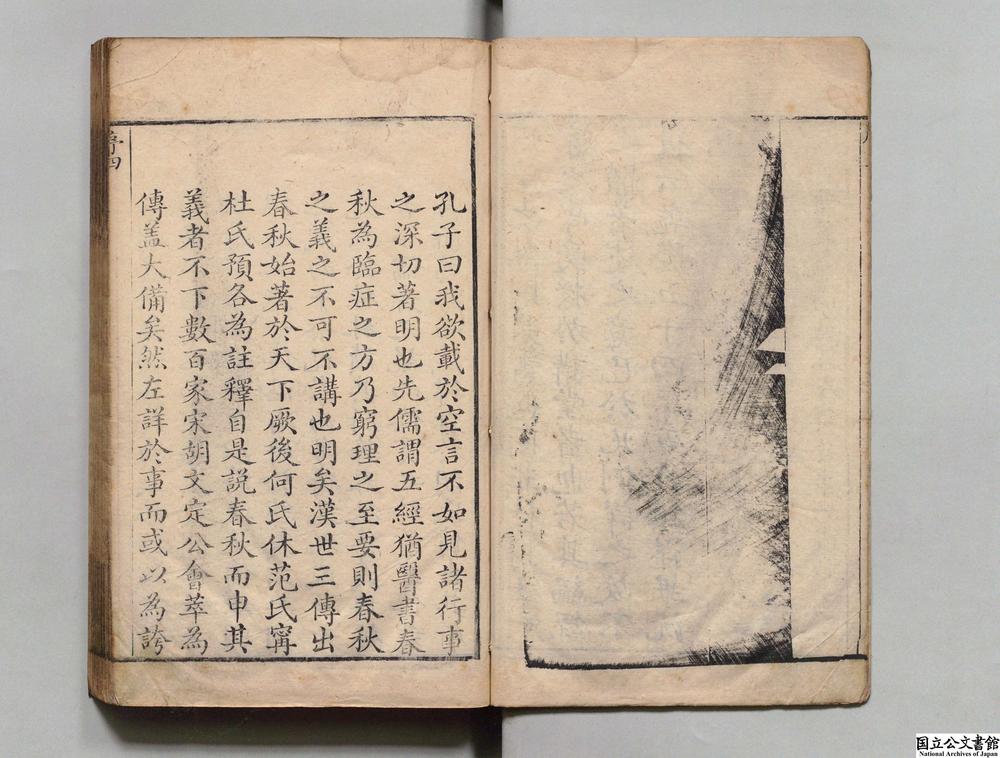 孔子曰我欲載於空言不如見諸行事
之深切著明也先儒謂五經猶醫書春
秋為臨症之方乃窮理之至要則春秋
之義之不可不講也明矣漢世三傳出
春秋始著於天下厥後何氏休范氏寗
杜氏預各為註釋自是說春秋而申其
義者不下數百家宋胡文定公會萃為
傳盖大備矣然左詳於事而或以為誇
序四
国立公文書館
National Archives of Japan